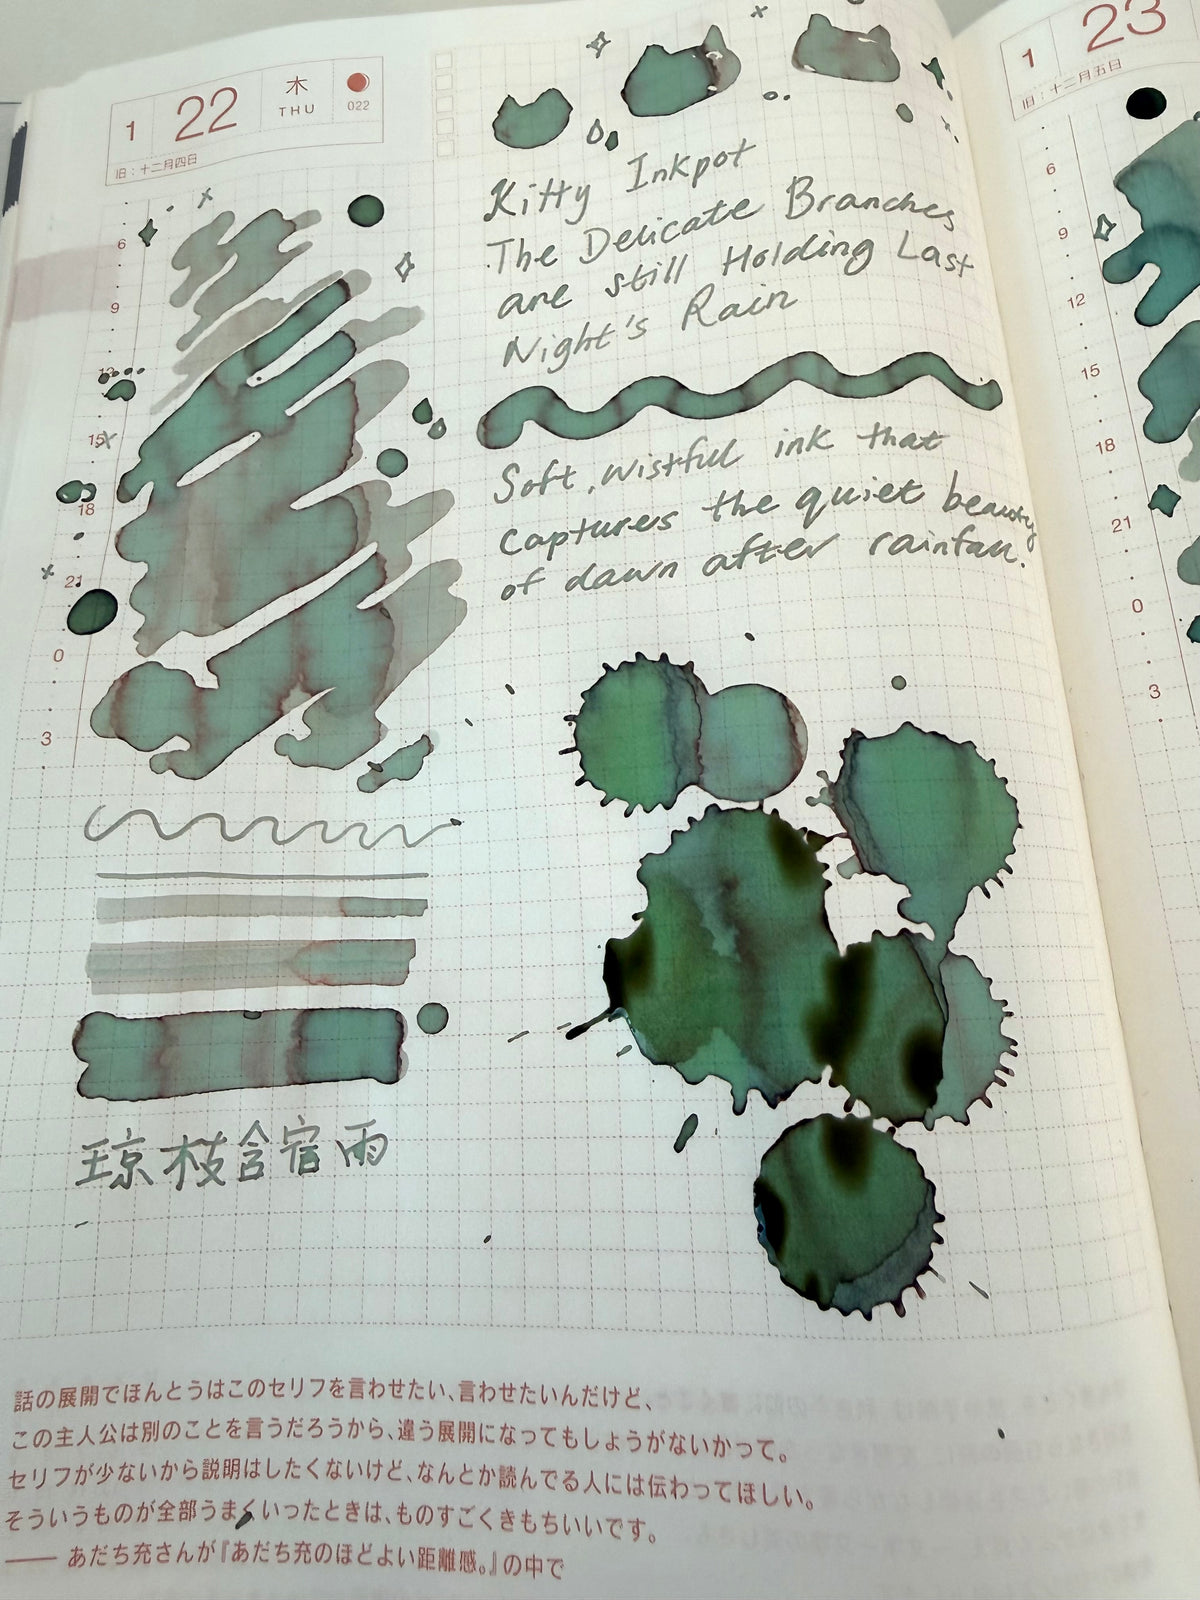 1 22 木 THU 022
旧：十二月四日
6
9
12
15
18
21
0
3
Kitty Inkpot
The Delicate Branches
are still Holding Last
Night's Rain
Soft, wistful ink that
captures the quiet beauty
of dawn after rainfall.
琼枝含宿雨
話の展開でほんとうはこのセリフを言わせたい、言わせたいんだけど、
この主人公は別のことを言うだろうから、違う展開になってもしょうがないかって。
セリフが少ないから説明はしたくないけど、なんとか読んでる人には伝わってほしい。
そういうものが全部うまくいったときは、ものすごくきもちいいです。
—— あだち充さんが『あだち充のほどよい距離感。』の中で
1 23
旧：十二月五日
6
9
12
15
18
21
0
3